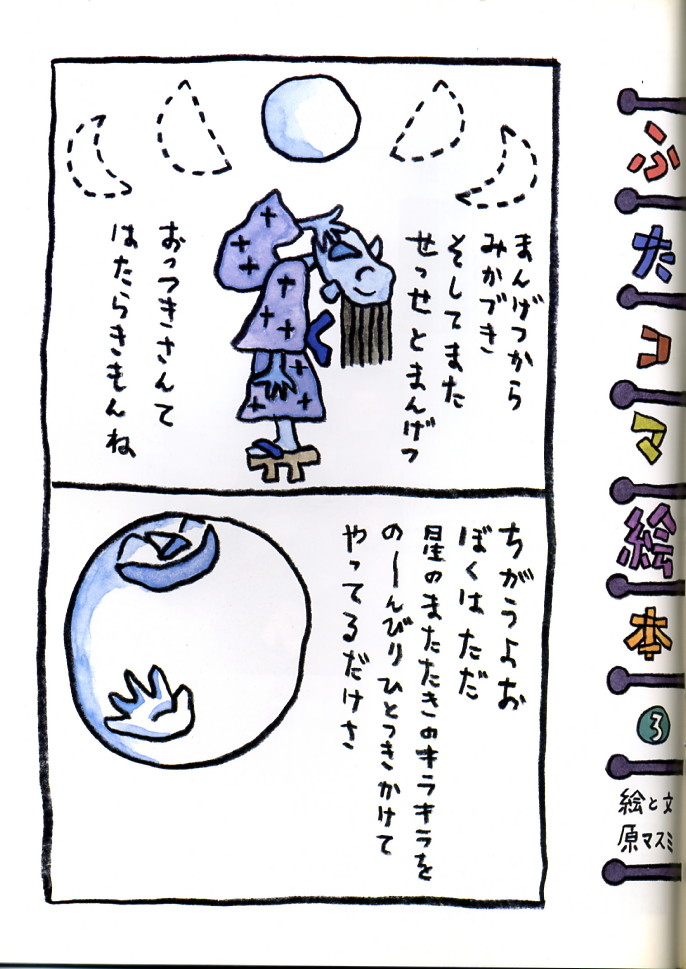 ふたコマ絵本
3
絵と文
原マスミ
まんげつから
みかづき
そしてまた
せっせとまんげつ
おっつきさんて
はたらきもんね
ちがうよお
ぼくはただ
星のまたたきのキラキラを
の〜んびりひとつきかけて
やってるだけさ